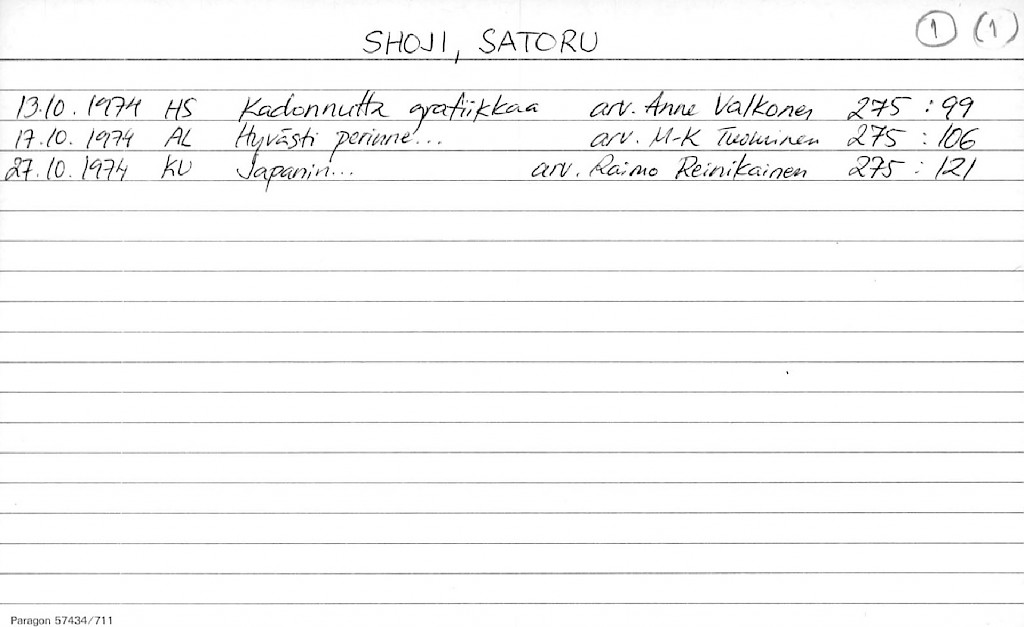 SHOJI, SATORU 1 (1)
13.10.1974 HS Kadonnutta grafiikkaa arv. Anne Valkonen 275 : 99
17.10.1974 AL Hyvästi perinne... arv. M-K Tuominen 275 : 106
27.10.1974 KU Japanin... arv. Raimo Reinikainen 275 : 121
Paragon 57434/711